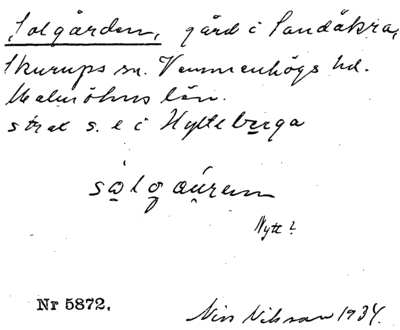 Solgården, gård i Sandåkra,
Skurups sn. Vemmenhögs hd.
Malmöhus län.
strax s. e i Hylteberga
sǫlgaurem
Nytt?
Nr 5872.
Nils Nilsson 1934.